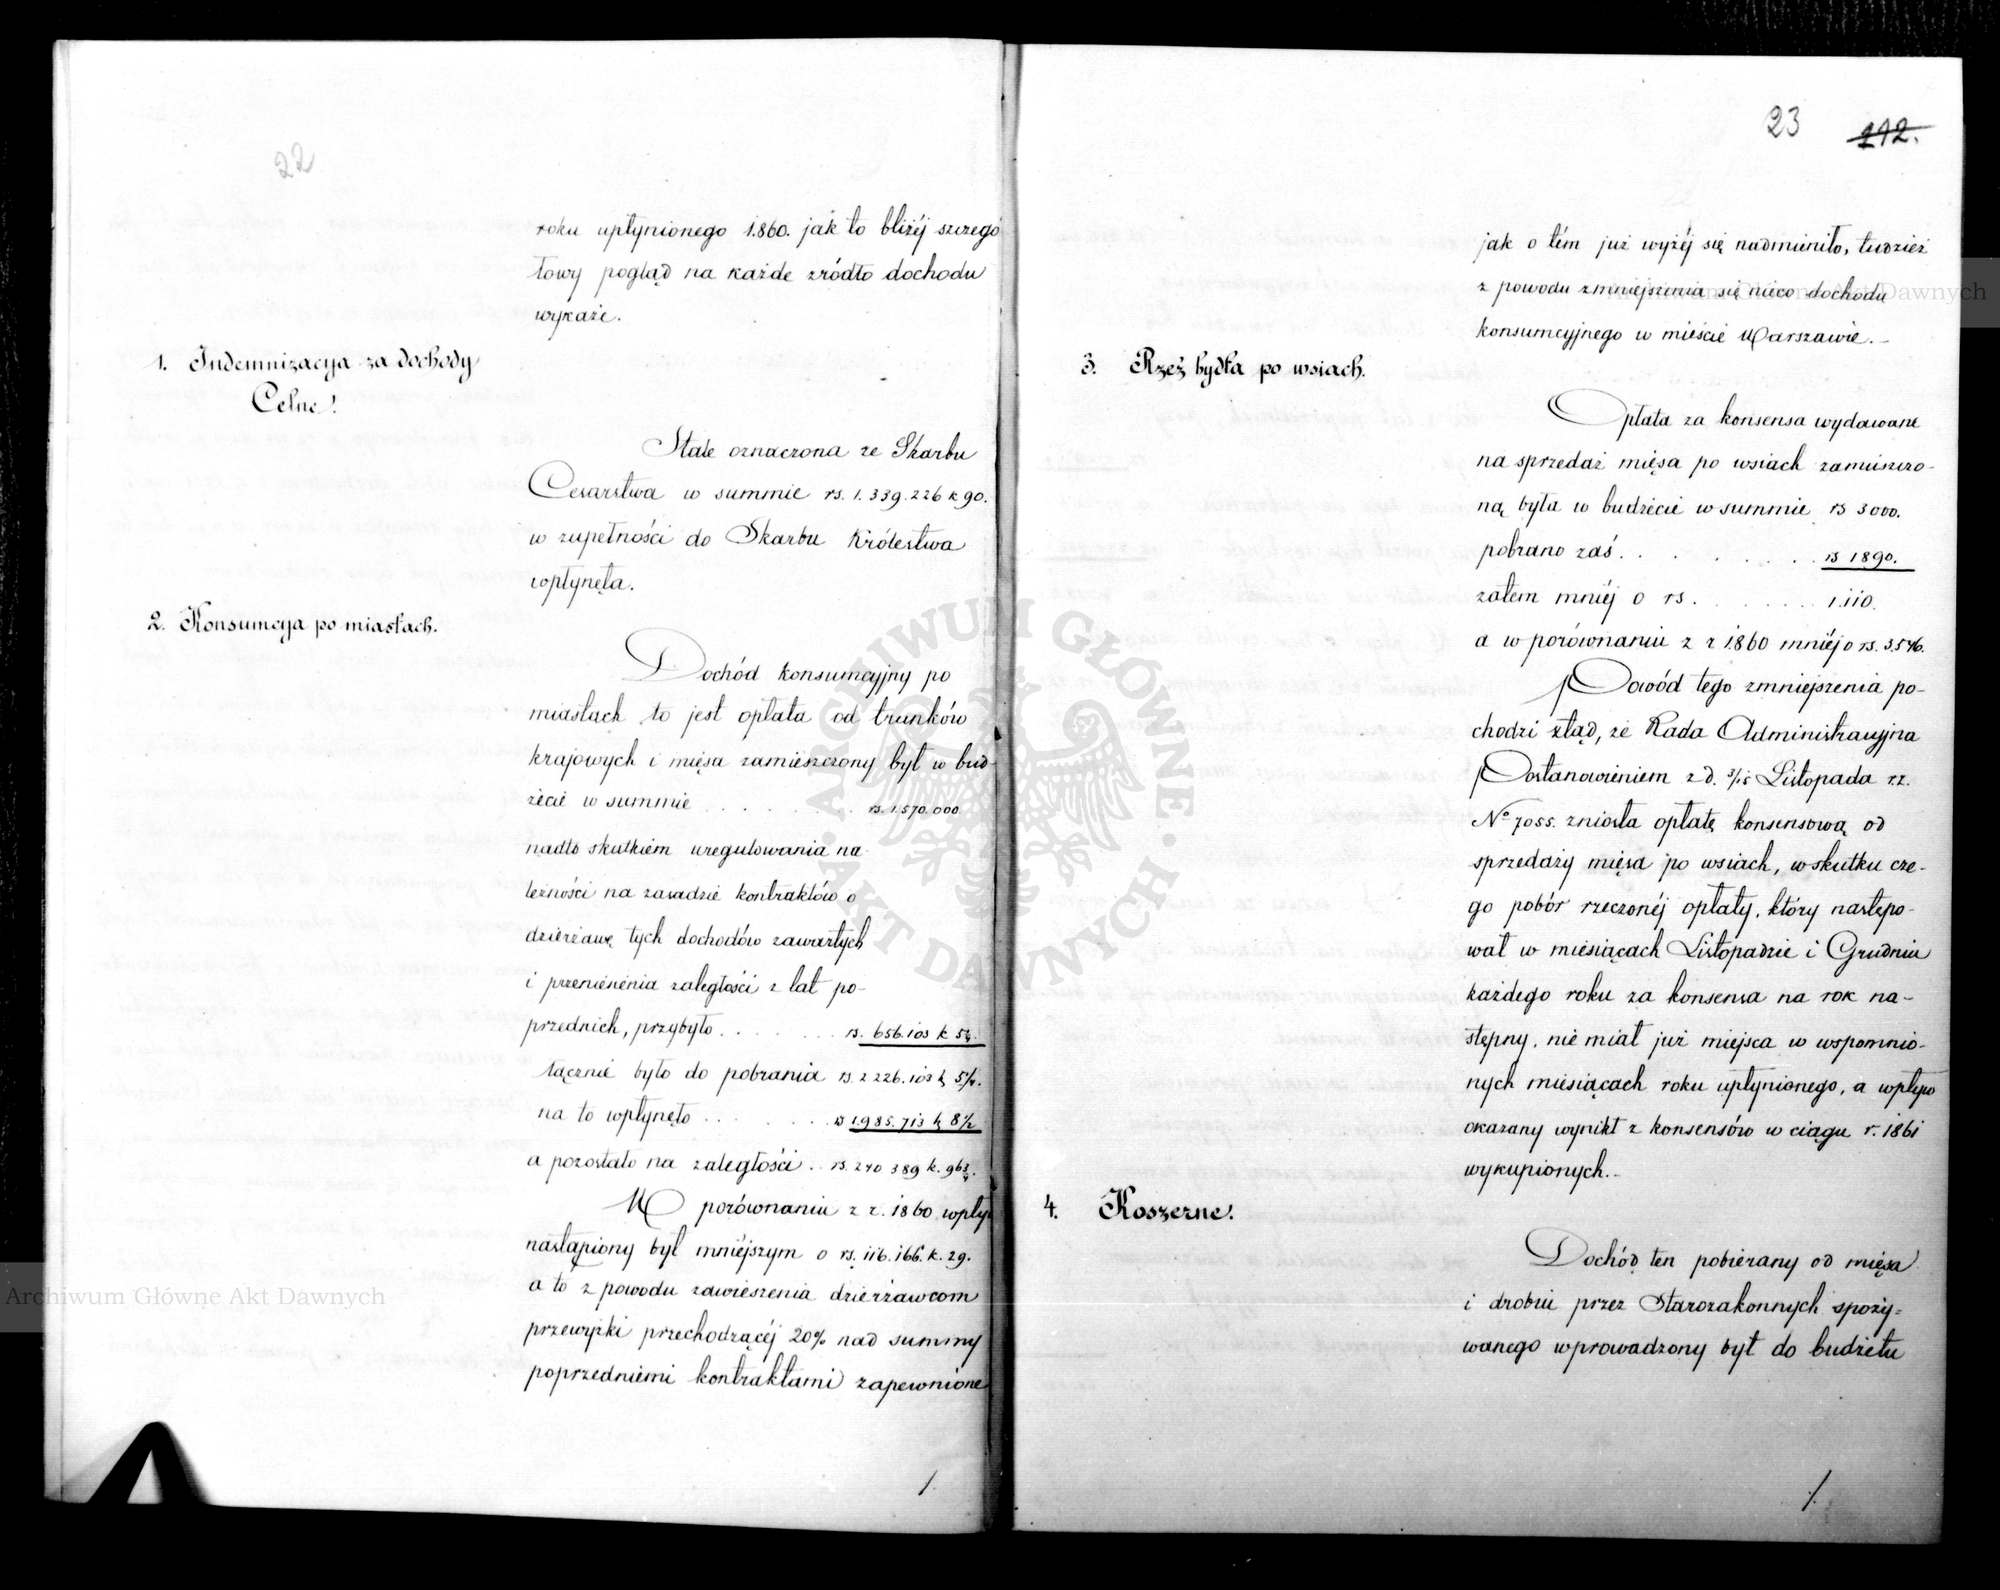 22
roku upłynionego 1860. jak to bliżéj szczegó
łowy pogląd na każde zródło dochodu
wykaże.
1. Indemnizacyja za dochody
Celne.
Stale oznaczona ze Skarbu
Cesarstwa w summie rs. 1.339.226 k 90.
w zupełności do Skarbu Królestwa
wpłynęła.
2. Konsumcyja po miastach.
Dochód konsumcyjny po
miastach to jest opłata od trunków
krajowych i mięsa zamieszczony był w bud-
żecie w summie . . . . . . rs. 1.570.000.
nadto skutkiem uregulowania na-
leżności na zasadzie kontraktów o
dzierżawę tych dochodów zawartych
i przeniesienia zaległości z lat po-
przednich, przybyło . . . . . rs. 656.103 k 5¼.
łącznie było do pobrania rs. 2 226.103 k 5¼.
na to wpłynęło . . . . . . rs 1.985.713 k 8½
a pozostało na zaległości . . rs. 240 389 k. 96¾.
W porównaniu z r. 1860 wpływ
nastąpiony był mniéjszym o rs. 116.166. k. 29.
a to z powodu zawieszenia dzierżawcom
przewyżki przechodzącéj 20% nad summy
poprzedniemi kontraktami zapewnione
/.
23 212.
jak o tém już wyżéj się nadmieniło, tudzież
z powodu zmniejszenia się nieco dochodu
konsumcyjnego w mieście Warszawie.-
3. Rzeź bydła po wsiach.
Opłata za konsensa wydawane
na sprzedaż mięsa po wsiach zamieszczo-
ną była w budżecie w summie rs 3000.
pobrano zaś . . . . . . . . rs 1890.
zatem mniéj o rs . . . . . . 1.110.
a w porównaniu z r 1860 mniéj o rs. 3.546.
Powód tego zmniejszenia po-
chodzi ztąd, że Rada Administracyjna
Postanowieniem z d. 3/15 Listopada r.z.
No 7055. zniosła opłatę konsensową od
sprzedaży mięsa po wsiach, w skutku cze-
go pobór rzeczonéj opłaty, który następo-
wał w miesiącach Listopadzie i Grudniu
każdego roku za konsensa na rok na-
stępny, nie miał już miejsca w wspomnio-
nych miesiącach roku upłynionego, a wpływ
okazany wynikł z konsensów w ciągu r. 1861
wykupionych.-
4. Koszerne.
Dochód ten pobierany od mięsa
i drobiu przez Starozakonnych spoży-
wanego wprowadzony był do budżetu
/.
ARCHIWUM GŁÓWNE AKT DAWNYCH
Archiwum Główne Akt Dawnych
Archiwum Główne Akt Dawnych